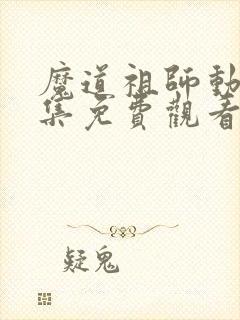 魔道祖師動
集免費觀看
疑鬼